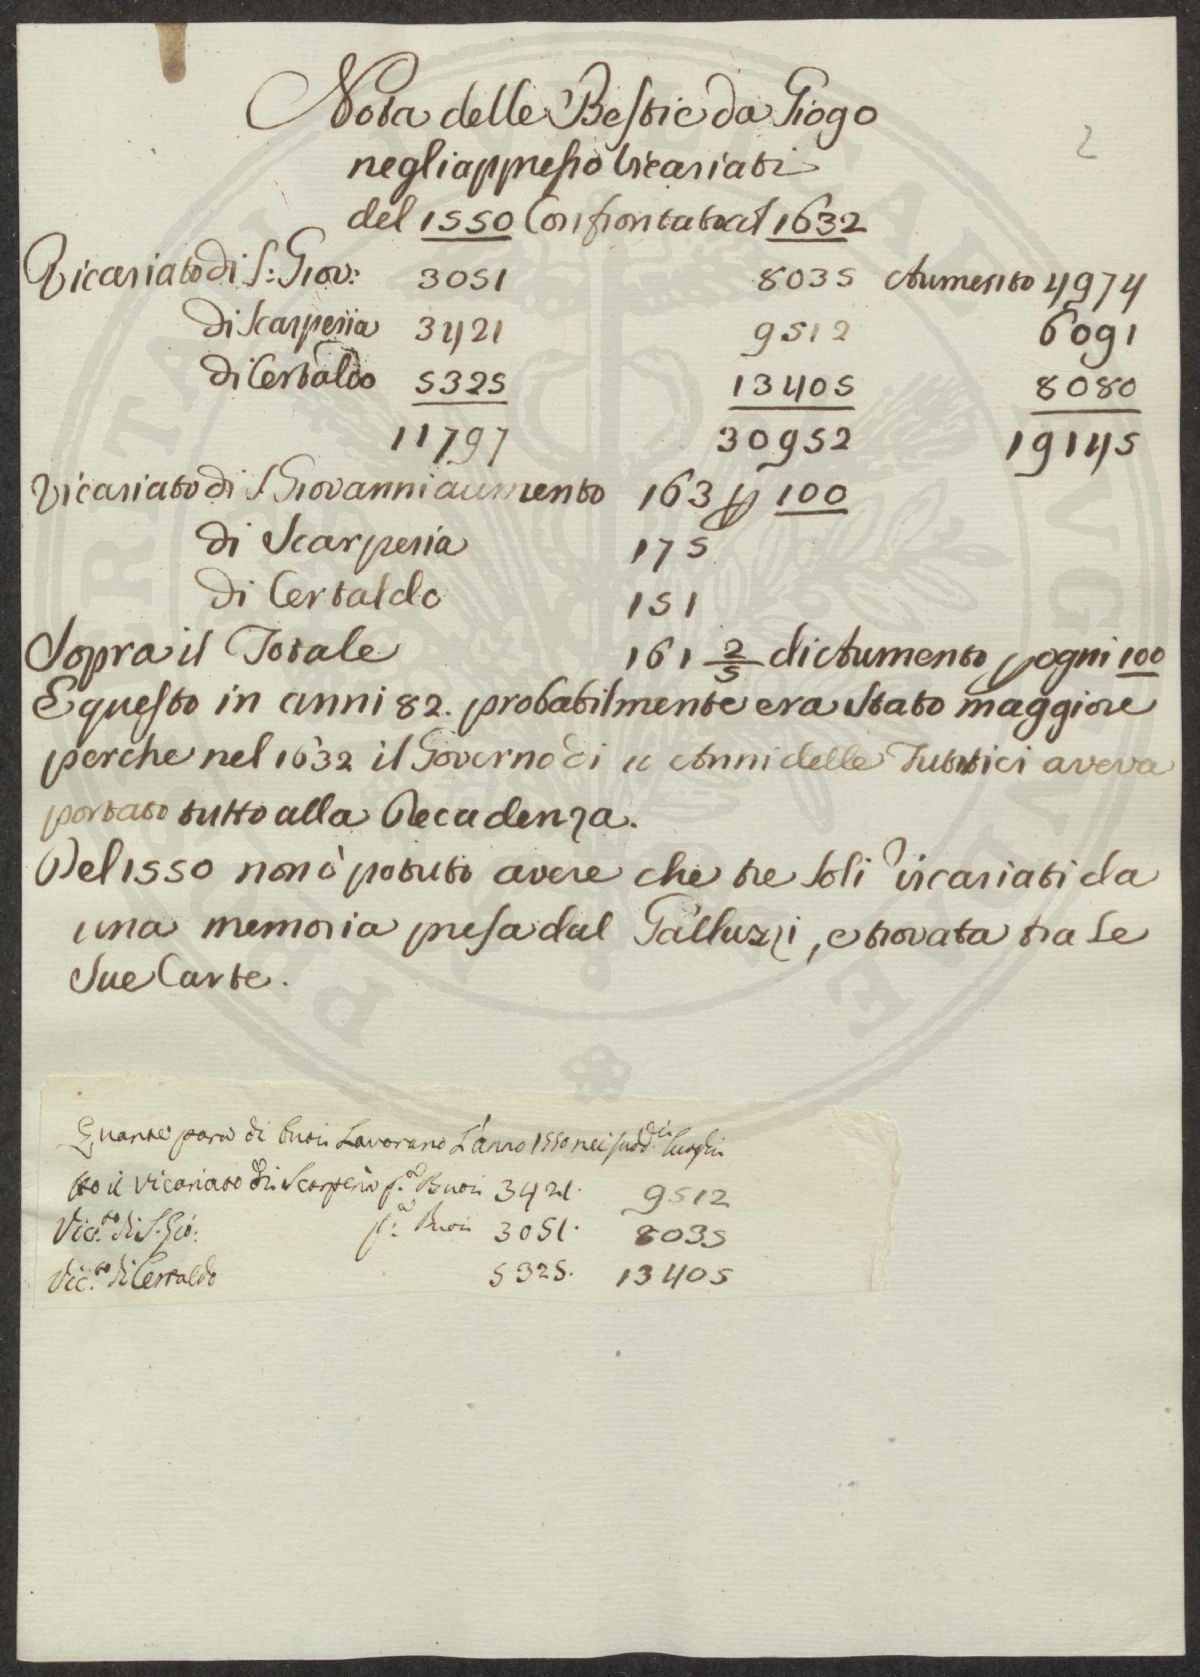 2
Nota delle Bestie da Giogo
negli appresso Vicariati
del 1550 Confrontata al 1632
Vicariato di S: Giov: 3051 8035 Aumento 4974
di Scarperia 3421 9512 6091
di Certaldo 5325 13405 8080
11797 30952 19145
Vicariato di S. Giovanni aumento 163 p 100
di Scarperia 175
di Certaldo 151
Sopra il Totale 161 2/5 di Aumento p ogni 100
E questo in anni 82. probabilmente era stato maggiore
perche nel 1632 il Governo di Anni delle Tutrici aveva
portato tutto alla Decadenza.
Del 1550 non ò potuto avere che tre soli Vicariati da
una memoria presa dal Galluzzi, e trovata tra le
sue Carte.
Quante para di buoi Lavorano L'anno 1550 nei sudd.i luoghi
tto il Vicariato di Scarperia p.a Buoi 3421. 9512
Vic.to di S. Gio: p.a Buoi 3051. 8035
Vic.to di Certaldo 5325. 13405